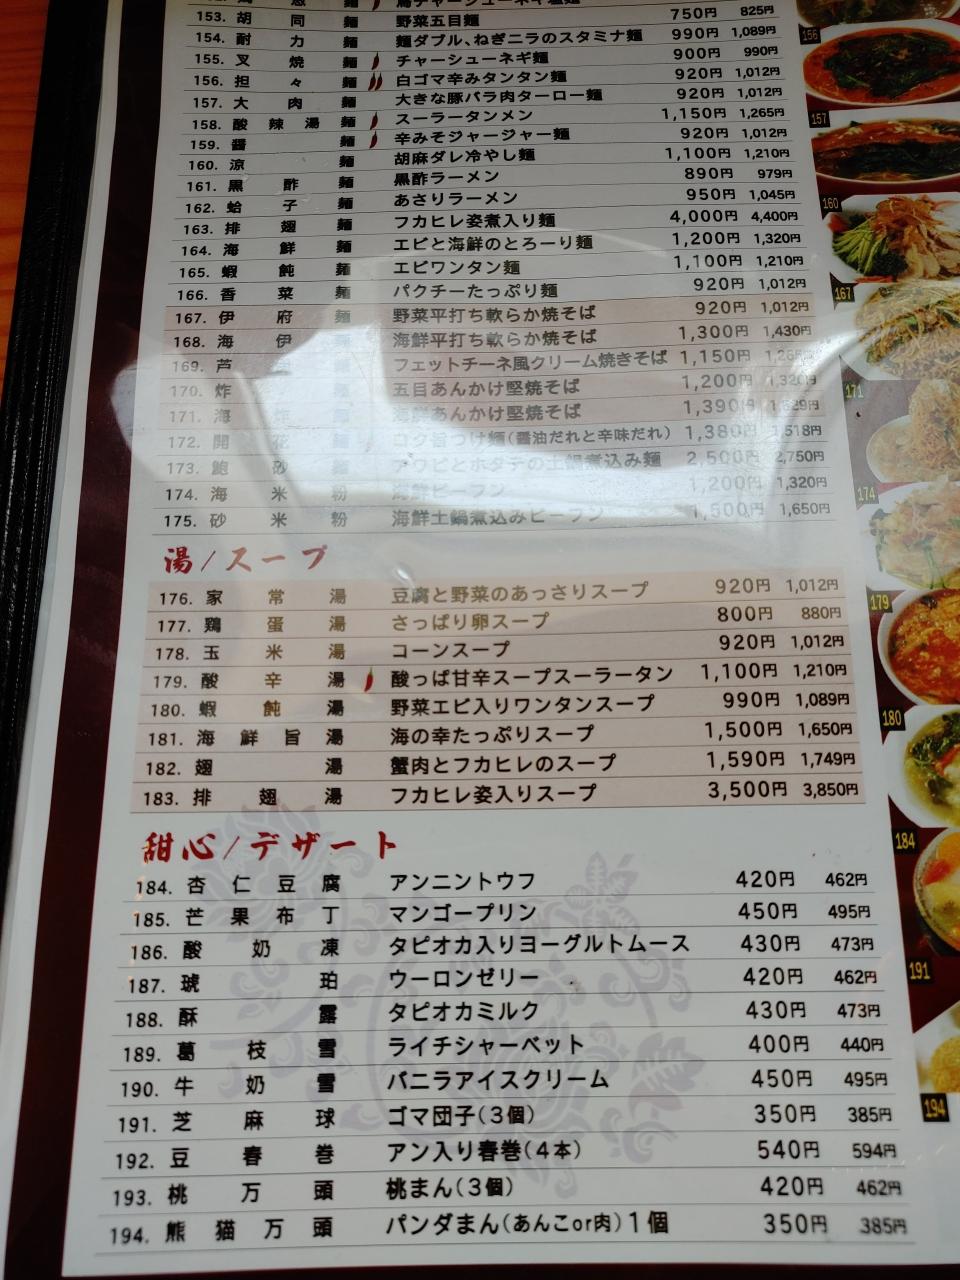 153. 胡同麺 野菜五目麺 750円 825円
154. 耐力麺 麺ダブル、ねぎニラのスタミナ麺 990円 1,089円
155. 叉焼麺 チャーシューネギ麺 900円 990円
156. 担々麺 白ゴマ辛みタンタン麺 920円 1,012円
157. 大肉麺 大きな豚バラ肉ターロー麺 920円 1,012円
158. 酸辣湯麺 スーラータンメン 1,150円 1,265円
159. 醤麺 辛みそジャージャー麺 920円 1,012円
160. 涼麺 胡麻ダレ冷やし麺 1,100円 1,210円
161. 黒酢麺 黒酢ラーメン 890円 979円
162. 蛤子麺 あさりラーメン 950円 1,045円
163. 排翅麺 フカヒレ姿煮入り麺 4,000円 4,400円
164. 海鮮麺 エビと海鮮のとろーり麺 1,200円 1,320円
165. 蝦飩麺 エビワンタン麺 1,100円 1,210円
166. 香菜麺 パクチーたっぷり麺 920円 1,012円
167. 伊府麺 野菜平打ち軟らか焼そば 920円 1,012円
168. 海伊麺 海鮮平打ち軟らか焼そば 1,300円 1,430円
169. 芦 麺 フェットチーネ風クリーム焼きそば 1,150円 1,265円
170. 炸 麺 五目あんかけ堅焼そば 1,200円 1,320円
171. 海炸麺 海鮮あんかけ堅焼そば 1,390円 1,529円
172. 開花麺 コク旨つけ麺(醤油だれと辛味だれ) 1,380円 1,518円
173. 鮑砂麺 アワビとホタテの土鍋煮込み麺 2,500円 2,750円
174. 海米粉 海鮮ビーフン 1,200円 1,320円
175. 砂米粉 海鮮土鍋煮込みビーフン 1,500円 1,650円
湯/スープ
176. 家常湯 豆腐と野菜のあっさりスープ 920円 1,012円
177. 鶏蛋湯 さっぱり卵スープ 800円 880円
178. 玉米湯 コーンスープ 920円 1,012円
179. 酸辛湯 酸っぱ甘辛スープスーラータン 1,100円 1,210円
180. 蝦飩湯 野菜エビ入りワンタンスープ 990円 1,089円
181. 海鮮旨湯 海の幸たっぷりスープ 1,500円 1,650円
182. 翅湯 蟹肉とフカヒレのスープ 1,590円 1,749円
183. 排翅湯 フカヒレ姿入りスープ 3,500円 3,850円
甜心/デザート
184. 杏仁豆腐 アンニントウフ 420円 462円
185. 芒果布丁 マンゴープリン 450円 495円
186. 酸奶凍 タピオカ入りヨーグルトムース 430円 473円
187. 琥珀 ウーロンゼリー 420円 462円
188. 酥露 タピオカミルク 430円 473円
189. 葛枝雪 ライチシャーベット 400円 440円
190. 牛奶雪 バニラアイスクリーム 450円 495円
191. 芝麻球 ゴマ団子(3個) 350円 385円
192. 豆春巻 アン入り春巻(4本) 540円 594円
193. 桃万頭 桃まん(3個) 420円 462円
194. 熊猫万頭 パンダまん(あんこor肉)1個 350円 385円
156
157
160
167
171
174
179
180
184
191
194